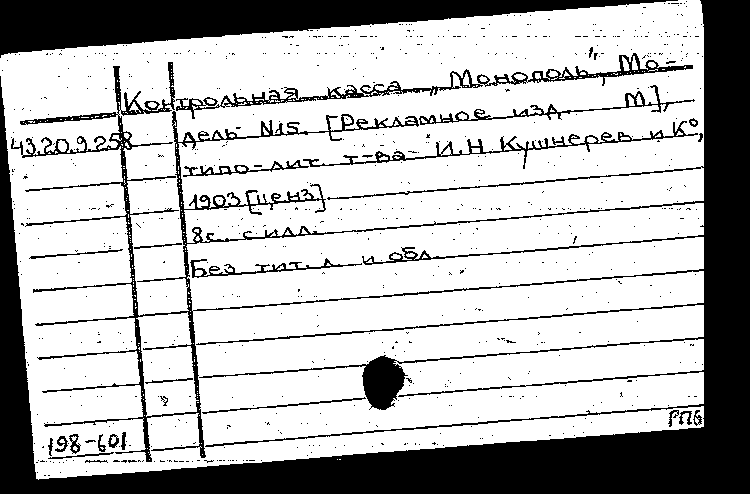 Контрольная касса „Монополь", Мо-
43.20.9.258 дель N15. [Рекламное изд. М.],
типо-лит. т-ва И.Н Кушнерев и К⁰,
1903 [ценз]
8с. с илл.
Без тит. л. и обл.
198-601 РПБ